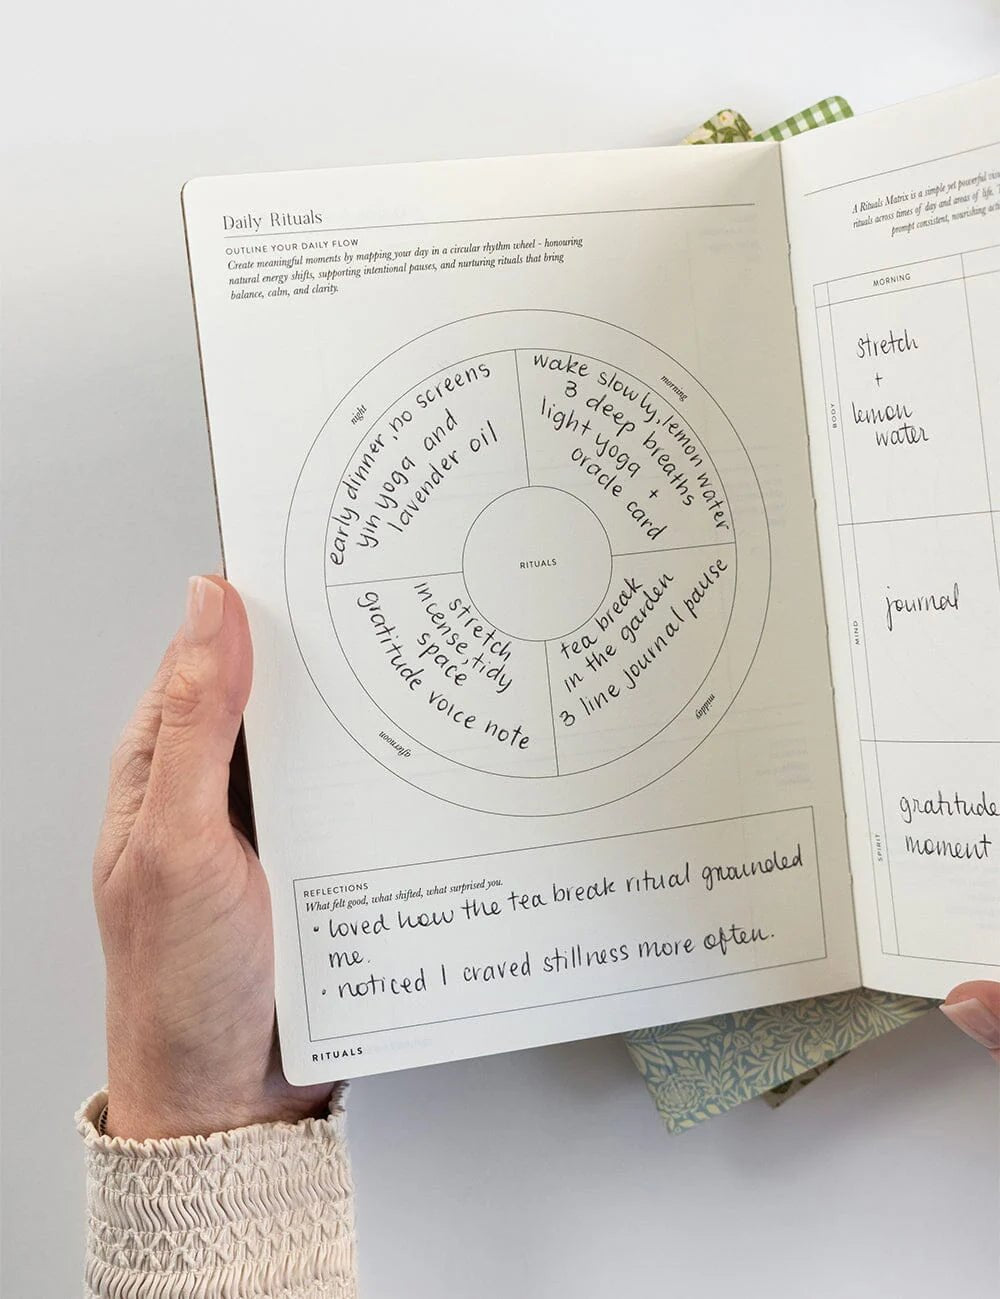 Daily Rituals
OUTLINE YOUR DAILY FLOW
Create meaningful moments by mapping your day in a circular rhythm wheel - honouring
natural energy shifts, supporting intentional pauses, and nurturing rituals that bring
balance, calm, and clarity.
night
early dinner, no screens
yin yoga and
lavender oil
morning
wake slowly, lemon water
3 deep breaths
light yoga +
oracle card
RITUALS
afternoon
stretch
incense, tidy
space
gratitude voice note
midday
tea break
in the garden
3 line journal pause
REFLECTIONS
What felt good, what shifted, what surprised you.
• loved how the tea break ritual grounded
me.
• noticed I craved stillness more often.
RITUALS
A Rituals Matrix is a simple yet powerful
rituals across times of day and areas of life.
prompt consistent, nourishing
MORNING
BODY
stretch
+
lemon
water
MIND
journal
SPIRIT
gratitude
moment